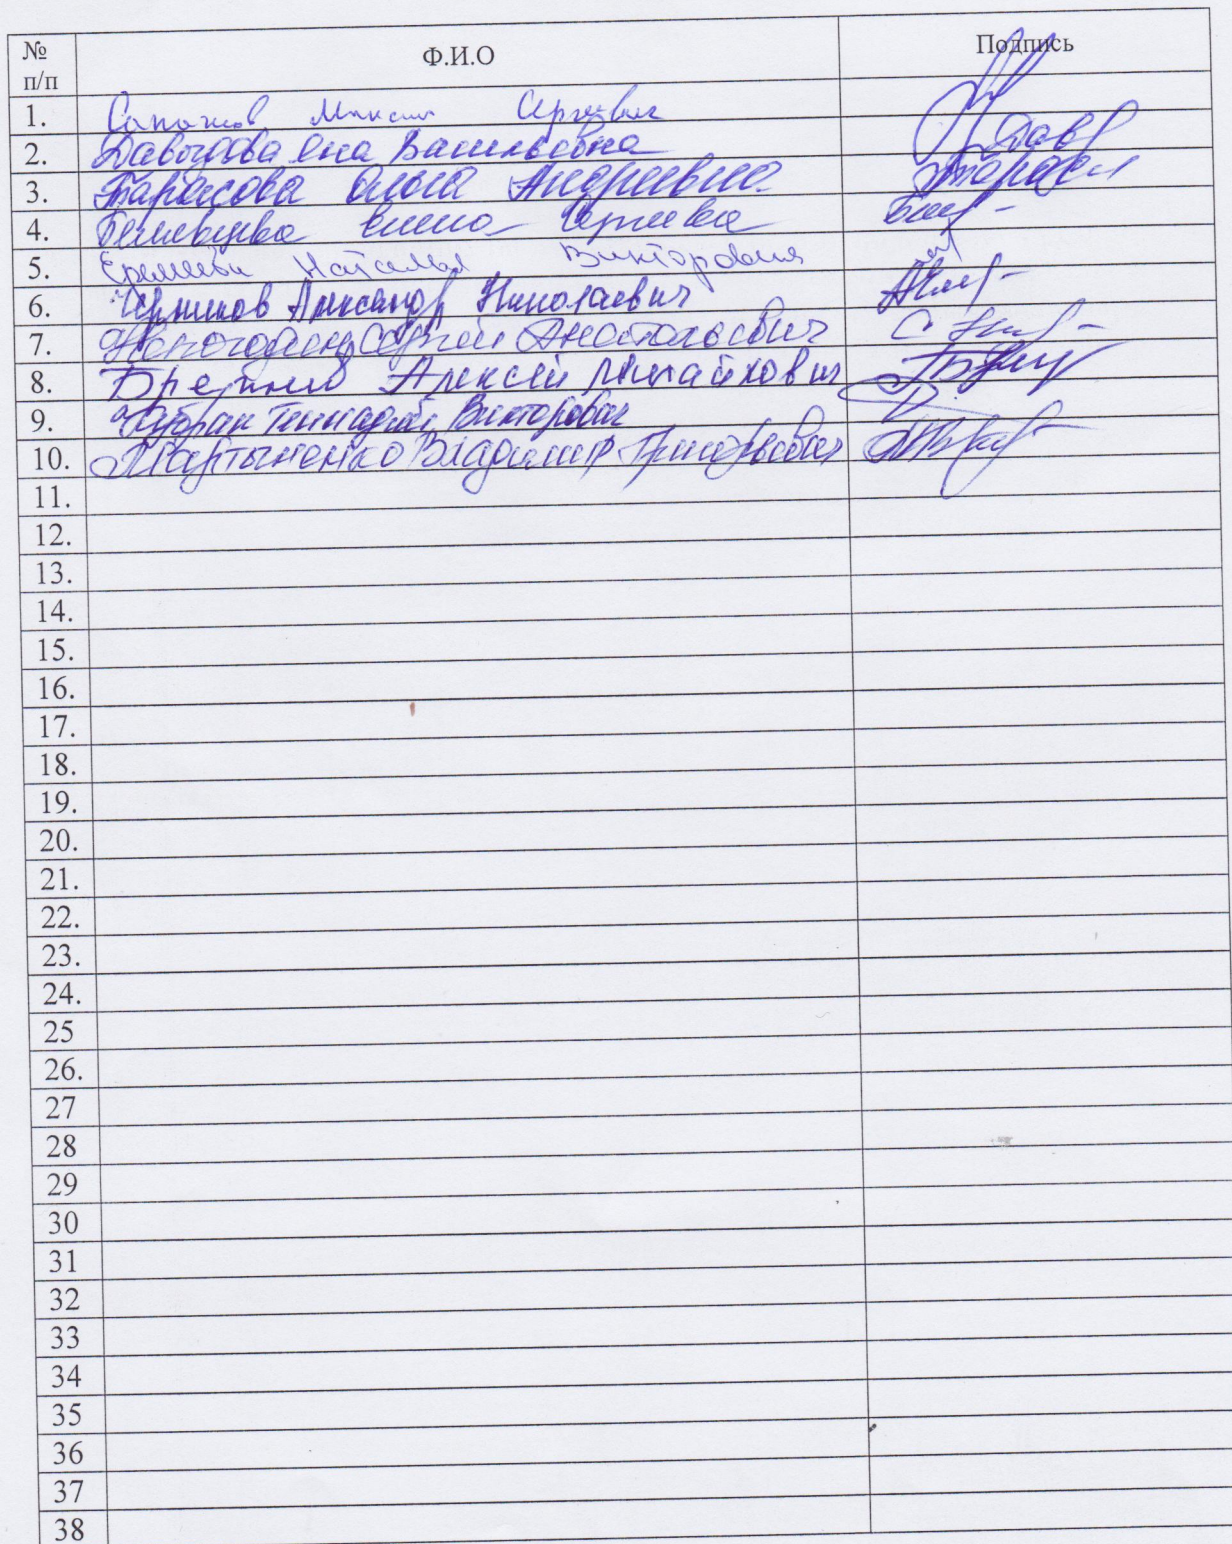 № п/п Ф.И.О Подпись
1. Максим Сергеевич
2. Давыдова Яна Васильевна Дав
3. Тарасова Ольга Андреевна Тарас
4. Сергеевна
5. Еремеева Наталья Викторовна
6. Черников Александр Николаевич
7. Сергей Анатольевич
8. Алексей Михайлович
9. Геннадий Викторович
10. Мартыненко Владимир Григорьевич
11.
12.
13.
14.
15.
16.
17.
18.
19.
20.
21.
22.
23.
24.
25
26.
27
28
29
30
31
32
33
34
35
36
37
38